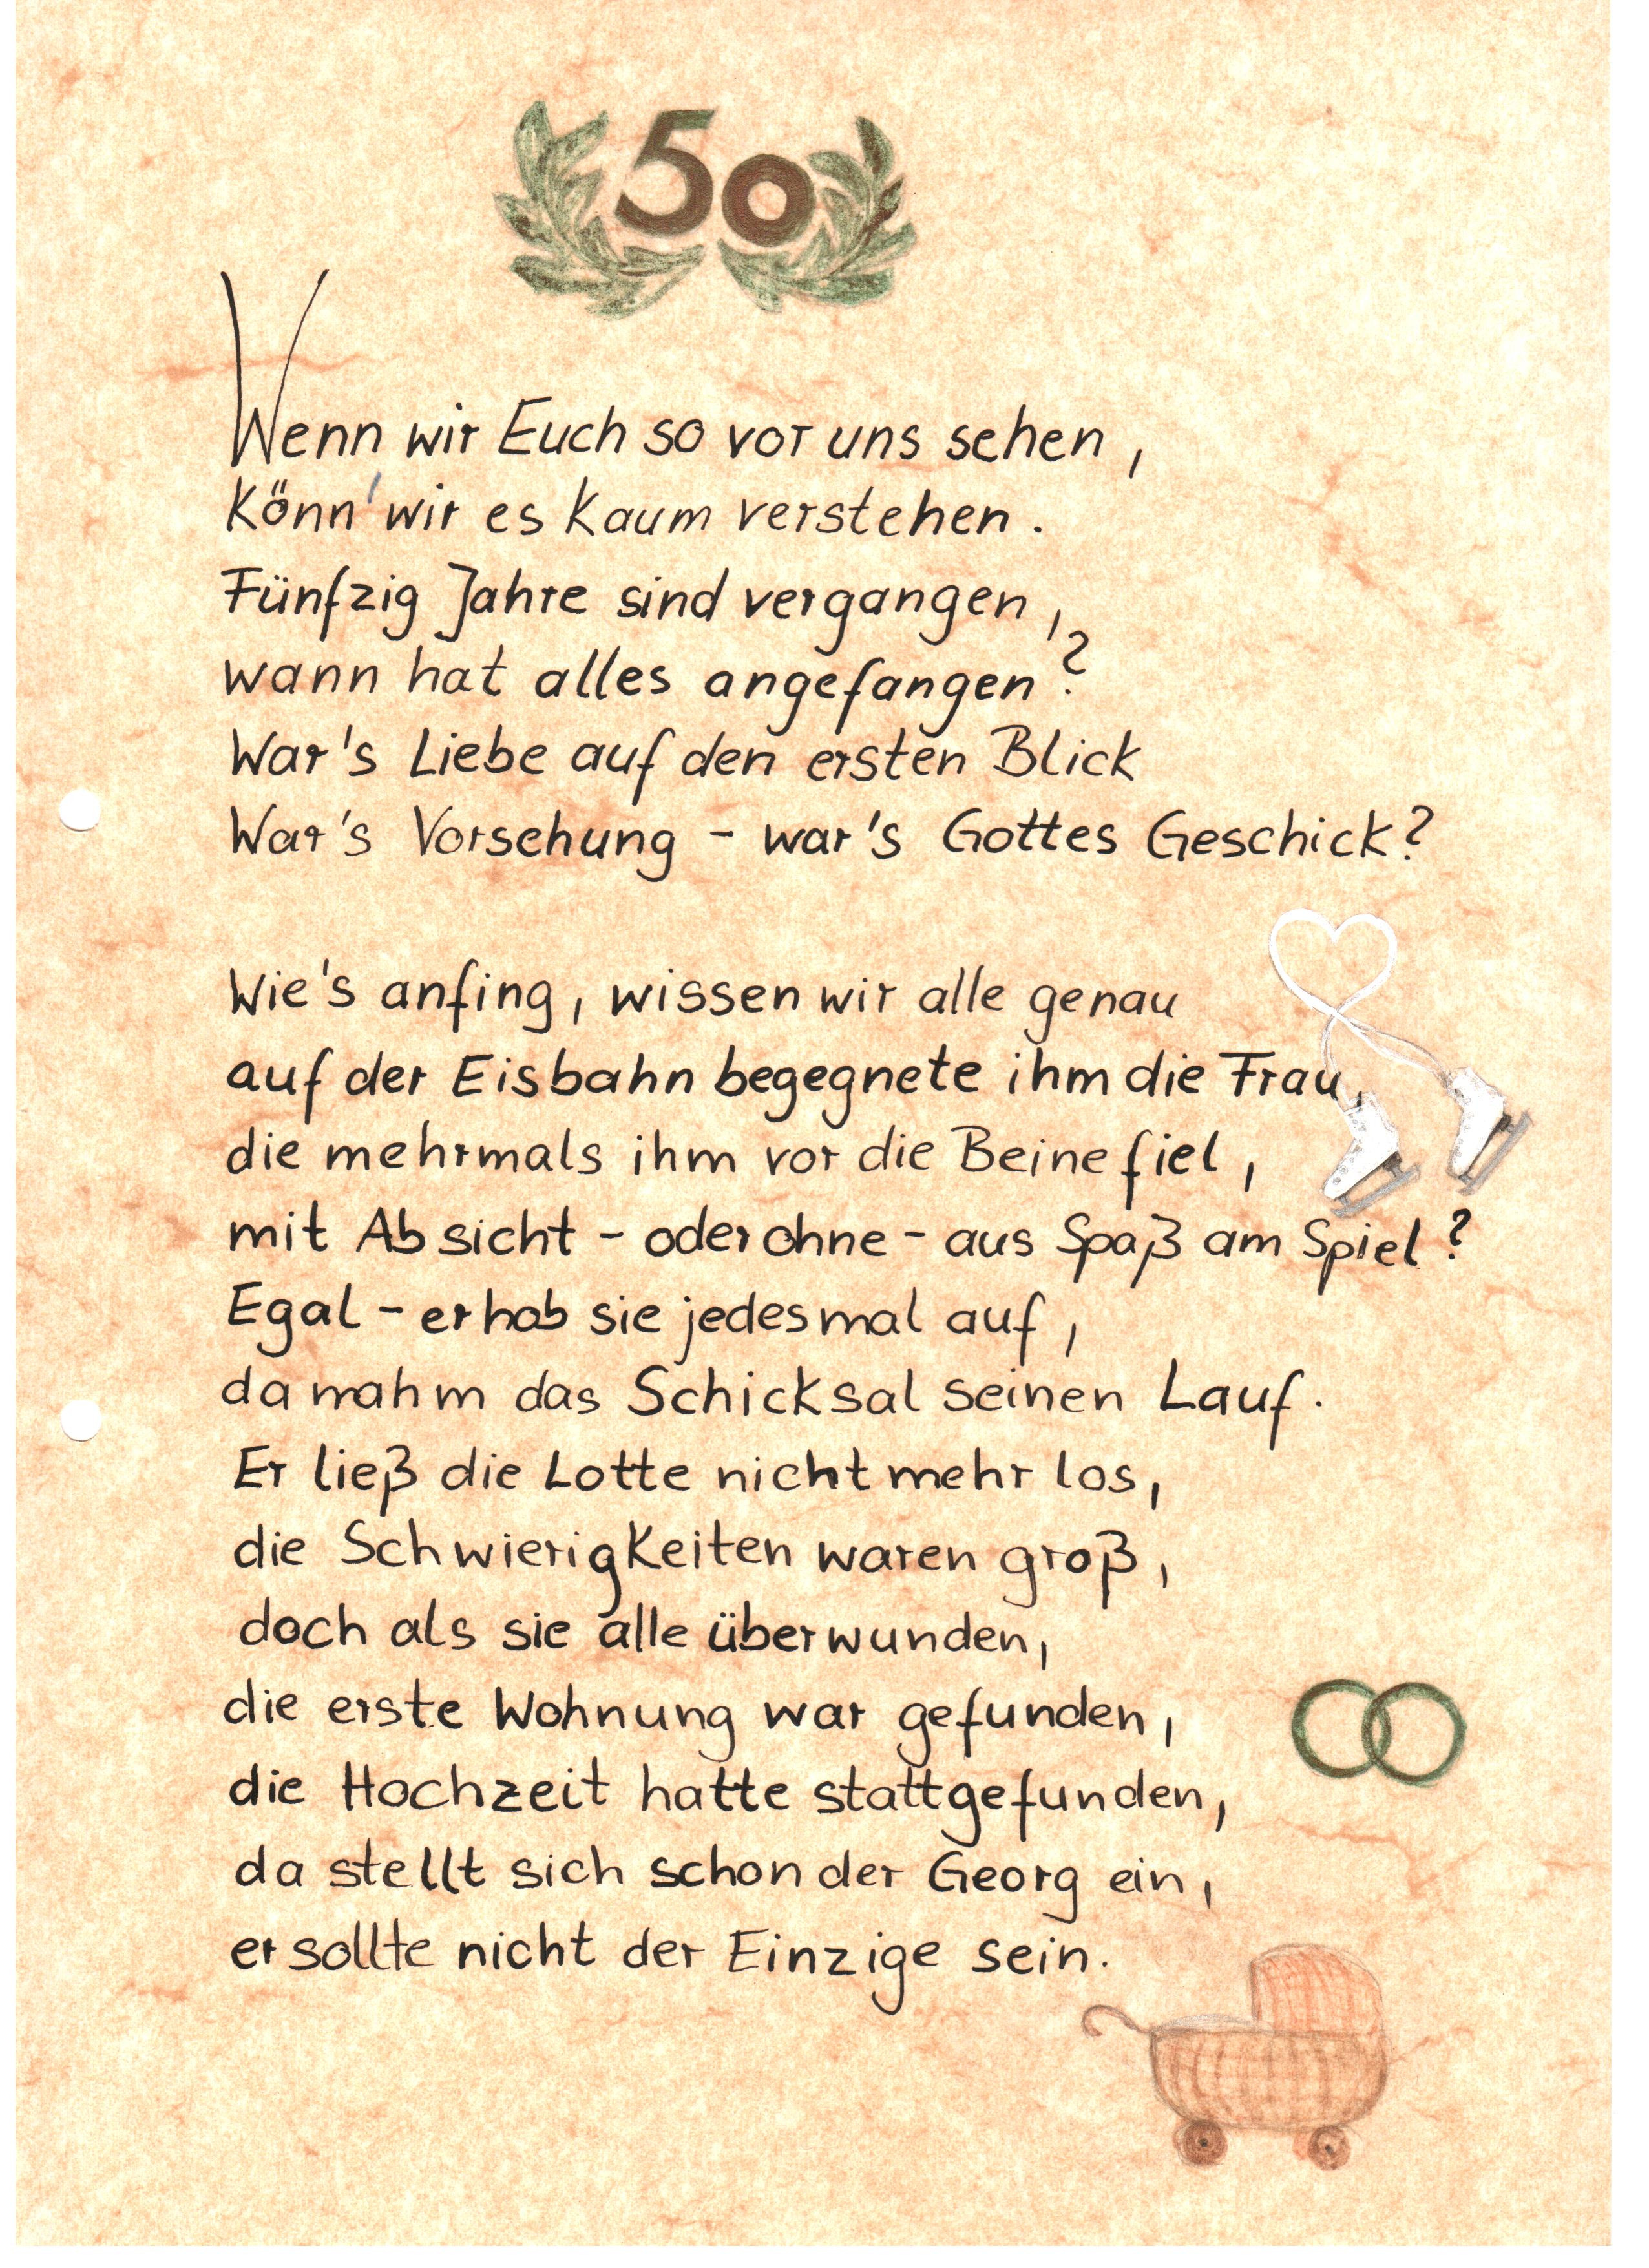 50
Wenn wir Euch so vor uns sehen,
Könn' wir es kaum verstehen.
Fünfzig Jahre sind vergangen,
wann hat alles angefangen?
War's Liebe auf den ersten Blick
War's Vorsehung - war's Gottes Geschick?
Wie's anfing, wissen wir alle genau
auf der Eisbahn begegnete ihm die Frau,
die mehrmals ihm vor die Beine fiel,
mit Absicht - oder ohne - aus Spaß am Spiel?
Egal - er hob sie jedesmal auf,
da nahm das Schicksal seinen Lauf.
Er ließ die Lotte nicht mehr los,
die Schwierigkeiten waren groß,
doch als sie alle überwunden,
die erste Wohnung war gefunden,
die Hochzeit hatte stattgefunden,
da stellt sich schon der Georg ein,
er sollte nicht der Einzige sein.